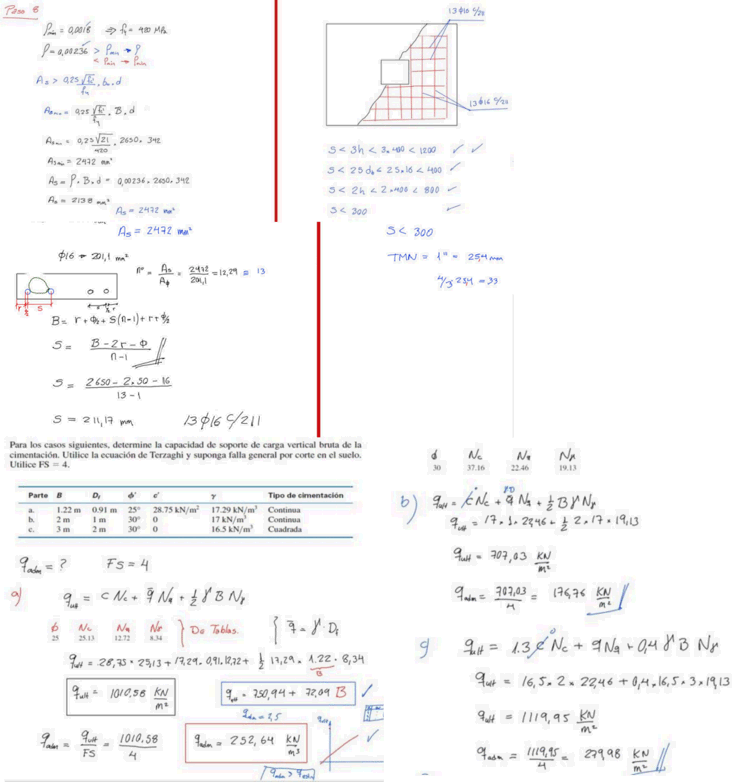 Paso 8
ρmin = 0,0018 ⇒ fy = 420 MPa
ρ = 0,00236 > ρmin → ρ
< ρmin → ρmin
As > 0,25 √f'c/fy . bw . d
Asmin = 0,25 √f'c/fy . B . d
Asmin = 0,25√21/420 . 2650 . 342
Asmin = 2472 mm²
As = ρ . B . d = 0,00236 . 2650 . 342
As = 2138 mm²
As = 2472 mm²
13 φ16 c/20
13 φ16 c/20
S < 3h < 3 . 400 < 1200 ✓ ✓
S < 25 db < 25 . 16 < 400 ✓
S < 2h < 2 . 400 < 800 ✓
S < 300 ✓
As = 2472 mm²
φ16 → 201,1 mm²
n° = As/Aφ = 2472/201,1 = 12,29 ≅ 13
r S
B = r + φ/2 + S(n-1) + r + φ/2
S = B - 2r - φ / n-1
S = 2650 - 2.50 - 16 / 13 - 1
S = 211,17 mm 13 φ16 c/211
S < 300
TMN = 1" = 25,4 mm
4/3 25,4 = 33
Para los casos siguientes, determine la capacidad de soporte de carga vertical bruta de la
cimentación. Utilice la ecuación de Terzaghi y suponga falla general por corte en el suelo.
Utilice FS = 4.
Parte B Df ϕ' c' γ Tipo de cimentación
a. 1.22 m 0.91 m 25° 28.75 kN/m² 17.29 kN/m³ Continua
b. 2 m 1 m 30° 0 17 kN/m³ Continua
c. 3 m 2 m 30° 0 16.5 kN/m³ Cuadrada
qadm = ? FS = 4
a) qult = c Nc + q̄ Nq + ½ γ B Nγ
ϕ Nc Nq Nγ } De Tablas. { q̄ = γ . Df
25 25.13 12.72 8.34
qult = 28,75 * 25,13 + 17,29 . 0,91 . 12,72 + ½ 17,29 * 1.22 * 8,34
B
qult = 1010,58 KN/m²
qult = 750,94 + 72,09 B ✓
qadm = qult/FS = 1010.58/4
qadm = 252,64 KN/m³
ϕ Nc Nq Nγ
30 37.16 22.46 19.13
b) qult = c Nc + q Nq + ½ B γ Nγ
qult = 17 * 1 * 22,46 + ½ 2 * 17 * 19,13
qult = 707,03 KN/m²
qadm = 707,03/4 = 176,76 KN/m²
c) qult = 1.3 c Nc + q Nq + 0,4 γ B Nγ
qult = 16,5 * 2 * 22,46 + 0,4 * 16,5 * 3 * 19,13
qult = 1119,95 KN/m²
qadm = 1119,95/4 = 279,98 KN/m²